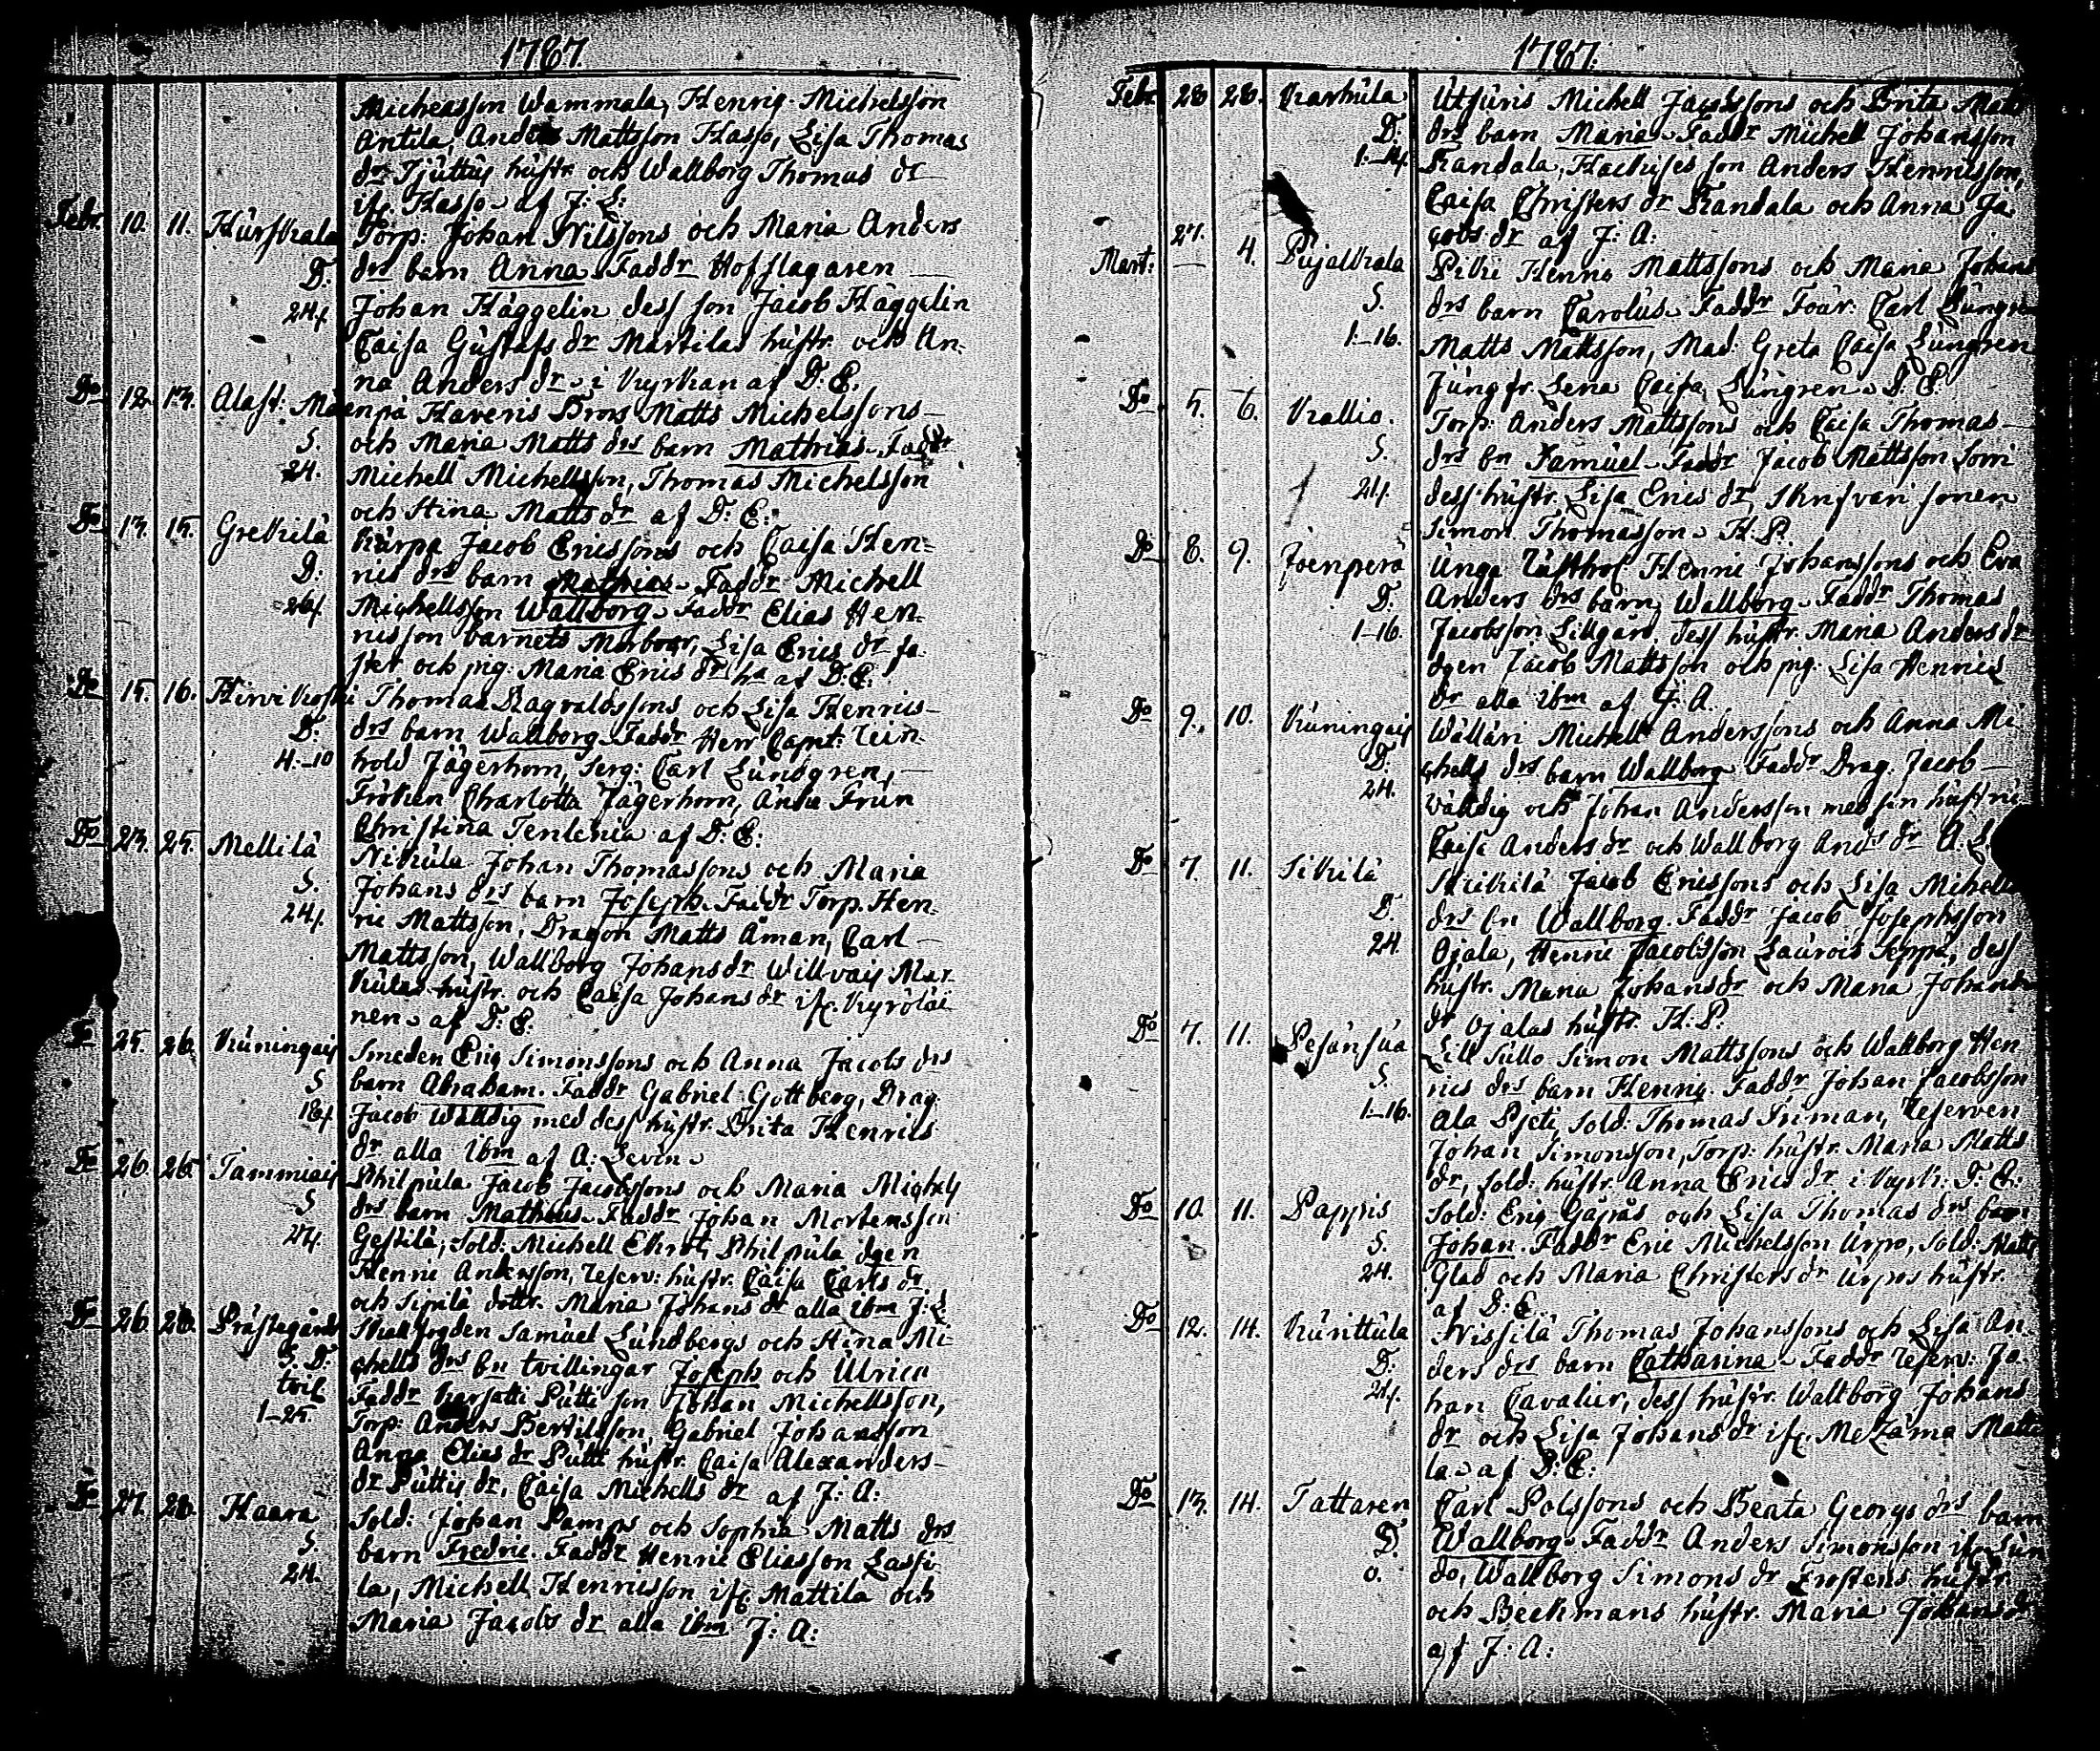 1787.
Michelsson Wammala, Henrig Michelsson
Antila, Anders Mattsson Hasso, Lisa Thomas
dr Tjuttuis hustr och Wallborg Thomas dr
Hasso af J: L:
Febr. 10. 11. Hurskala Torp: Johan Nilssons och Maria Anders
D. drs barn Anna Faddr Hofslagaren
24. Johan Häggelin dess son Jacob Häggelin
Caisa Gustafs dr Martilas hustr och An-
na Anders dr i Kyrkan af D. E.
Do 12. 13. Alast: Mäenpä Haveris Brors Matts Michelssons
S. och Maria Matts drs barn Mathias Faddr
24. Michell Michellsson, Thomas Michelsson
och Stina Matts dr af D: E:
Do 13. 15. Grekilä Kurpa Jacob Ericssons och Caisa Hen-
D: rics drs barn Mathias Faddr Michell
26. Michellsson Wallborg Faddr Elias Hen-
ricsson barnets Morbror, Lisa Erics dr fa
ster och pig: Maria Erics dr af D. E.
Do 15. 16. Hirvikoski Thomas Ragvaldssons och Lisa Henrics
D. drs barn Wallborg Faddr Herr Capit: Rein-
4.-10 hold Jägerhorn, Serg: Carl Lundgren,
Fröken Charlotta Jägerhorn, Änke Frun
Christina Tenlenia af D: E:
Do 23. 25. Mellilä Nikula Johan Thomassons och Maria
S. Johans drs barn Joseph Faddr Torp. Hen-
24. ric Mattsson, Dragon Matts Åman, Carl
Mattsson, Wallborg Johans dr Willvais Mar-
kulas hustr. och Caisa Johans dr Kyröläi
nen af D: E:
25. 26. Kuningais Smeden Eric Simonssons och Anna Jacobs drs
S barn Abraham. Faddr Gabriel Gottberg, Drag
18. Jacob Wäldig med dess hustr. Brita Henrics
dr alla ibm af A: Levin
26. 26. Tammiais Philpula Jacob Jacobssons och Maria Michels
S drs barn Matheus Faddr Johan Mortensson
27. Gestilä, Sold: Michell Ekrot, Philpula
Henric Andersson, Reserv: hustr. Caisa Carls dr
och Sipilä dottr. Maria Johans dr alla ibm J: L
26. 28. Prästegårds Skallfogden Samuel Lundbergs och Stina Mi-
S. D: chells drs bn tvillingar Joseph och Ulrica
tvil Faddr Putti son Johan Michellsson,
1-25. Torp: Anders Bertilsson, Gabriel Johansson
Anna Elias dr Putti hustr. Caisa Alexanders
dr Puttis dr, Caisa Michells dr af J: A:
27. 28. Haara Sold: Johan Pamps och Sophia Matts drs
S barn Fredric. Faddr Henric Eliasson Lassi
24. la, Michell Henricsson Mattila och
Maria Jacobs dr alla ibm J: A:
1787.
Febr 28 28. Karhula Utsuris Michell Jacobssons och Brita Matts
D: drs barn Maria Faddr Michell Johansson
1.-14. Randala, son Anders Henricsson,
Caisa Christers dr Randala och Anna Ja
cobs dr af J: A:
27.
Mart: 4. Pujalkala Pikri Henric Mattssons och Maria Johans
S. drs barn Carolus Faddr Carl Lungren
1.-16. Matts Mattsson, Mad: Greta Caisa Lungren
Jungfr. Lena Caisa Lungren D. E:
Do 5. 6. Kallio. Torp: Anders Mattssons och Caisa Thomas
S. drs bn Samuel Faddr Jacob Mattsson
24. dess hustr. Lisa Erics dr, sonen
Simon Thomasson H. P.
Do 8. 9. Joenperä Unga Rusthol Henric Johanssons och Eva
D: Anders drs barn Wallborg Faddr Thomas
1-16. Jacobsson Lillgård, dess hustr. Maria Anders dr
Jacob Mattsson och pig. Lisa Henrics
dr alla ibm af J: A.
Do 9. 10. Kuningais Wälläri Michell Anderssons och Anna Mi
D. chells drs barn Wallborg Faddr Drag. Jacob
24. Wäldig och Johan Andersson med sin hustru
Caisa Anders dr och Wallborg Ands dr A. L
Do 7. 11. Sikilä Jacob Ericssons och Lisa Michells
D. drs bn Wallborg Faddr Jacob Josephsson
24 Ojala, Henric Jacobsson Seppä, dess
hustr. Maria Johans dr och Maria Johans
dr Ojalas hustr. H. P.
Do 7. 11. Pesänsua Lill Sullo Simon Mattssons och Wallborg Hen
S. rics drs barn Henric. Faddr Johan Jacobsson
1-16. Ala Pjeti, Sold: Thomas Roman, Reserven
Johan Simonsson, Torp: hustr. Maria Matts
dr, Sold: hustr. Anna Erics dr i Kyrk: D. E:
Do 10. 11. Pappis Sold: Eric och Lisa Thomas drs barn
S. Johan. Faddr Eric Michelsson Urpo, Sold: Matts
24. Glad och Maria Christers dr Urpos hustr.
af D: E.
Do 12. 14. Kunittula Nissilä Thomas Johanssons och Lisa An-
D: ders drs barn Catharina Faddr Reserv: Jo
24. han Cavalier, dess hustr. Wallborg Johans
dr och Lisa Johans dr Matti
la af D: E:
Do 13. 14. Tattaren Carl Polssons och Beata Georgs drs barn
D. Wallborg Faddr Anders Simonsson
0. do, Wallborg Simons dr Frostens hustr
och Beckmans hustr. Maria Johans dr
af J: A: